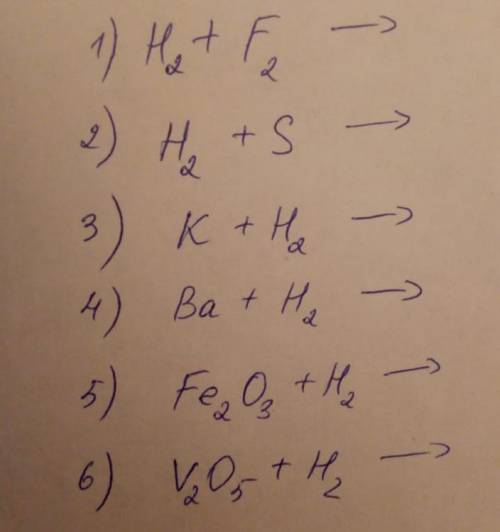 1) H₂ + F₂ →
2) H₂ + S →
3) K + H₂ →
4) Ba + H₂ →
5) Fe₂O₃ + H₂ →
6) V₂O₅ + H₂ →